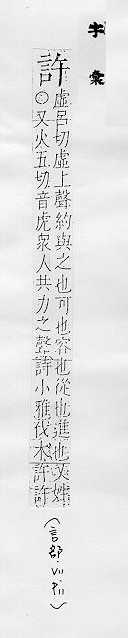 字彙
許
虛呂切虛上聲約與之也可也容也從也進也又姓
○又火五切音虎衆人共力之聲詩小雅伐木許許
(言部